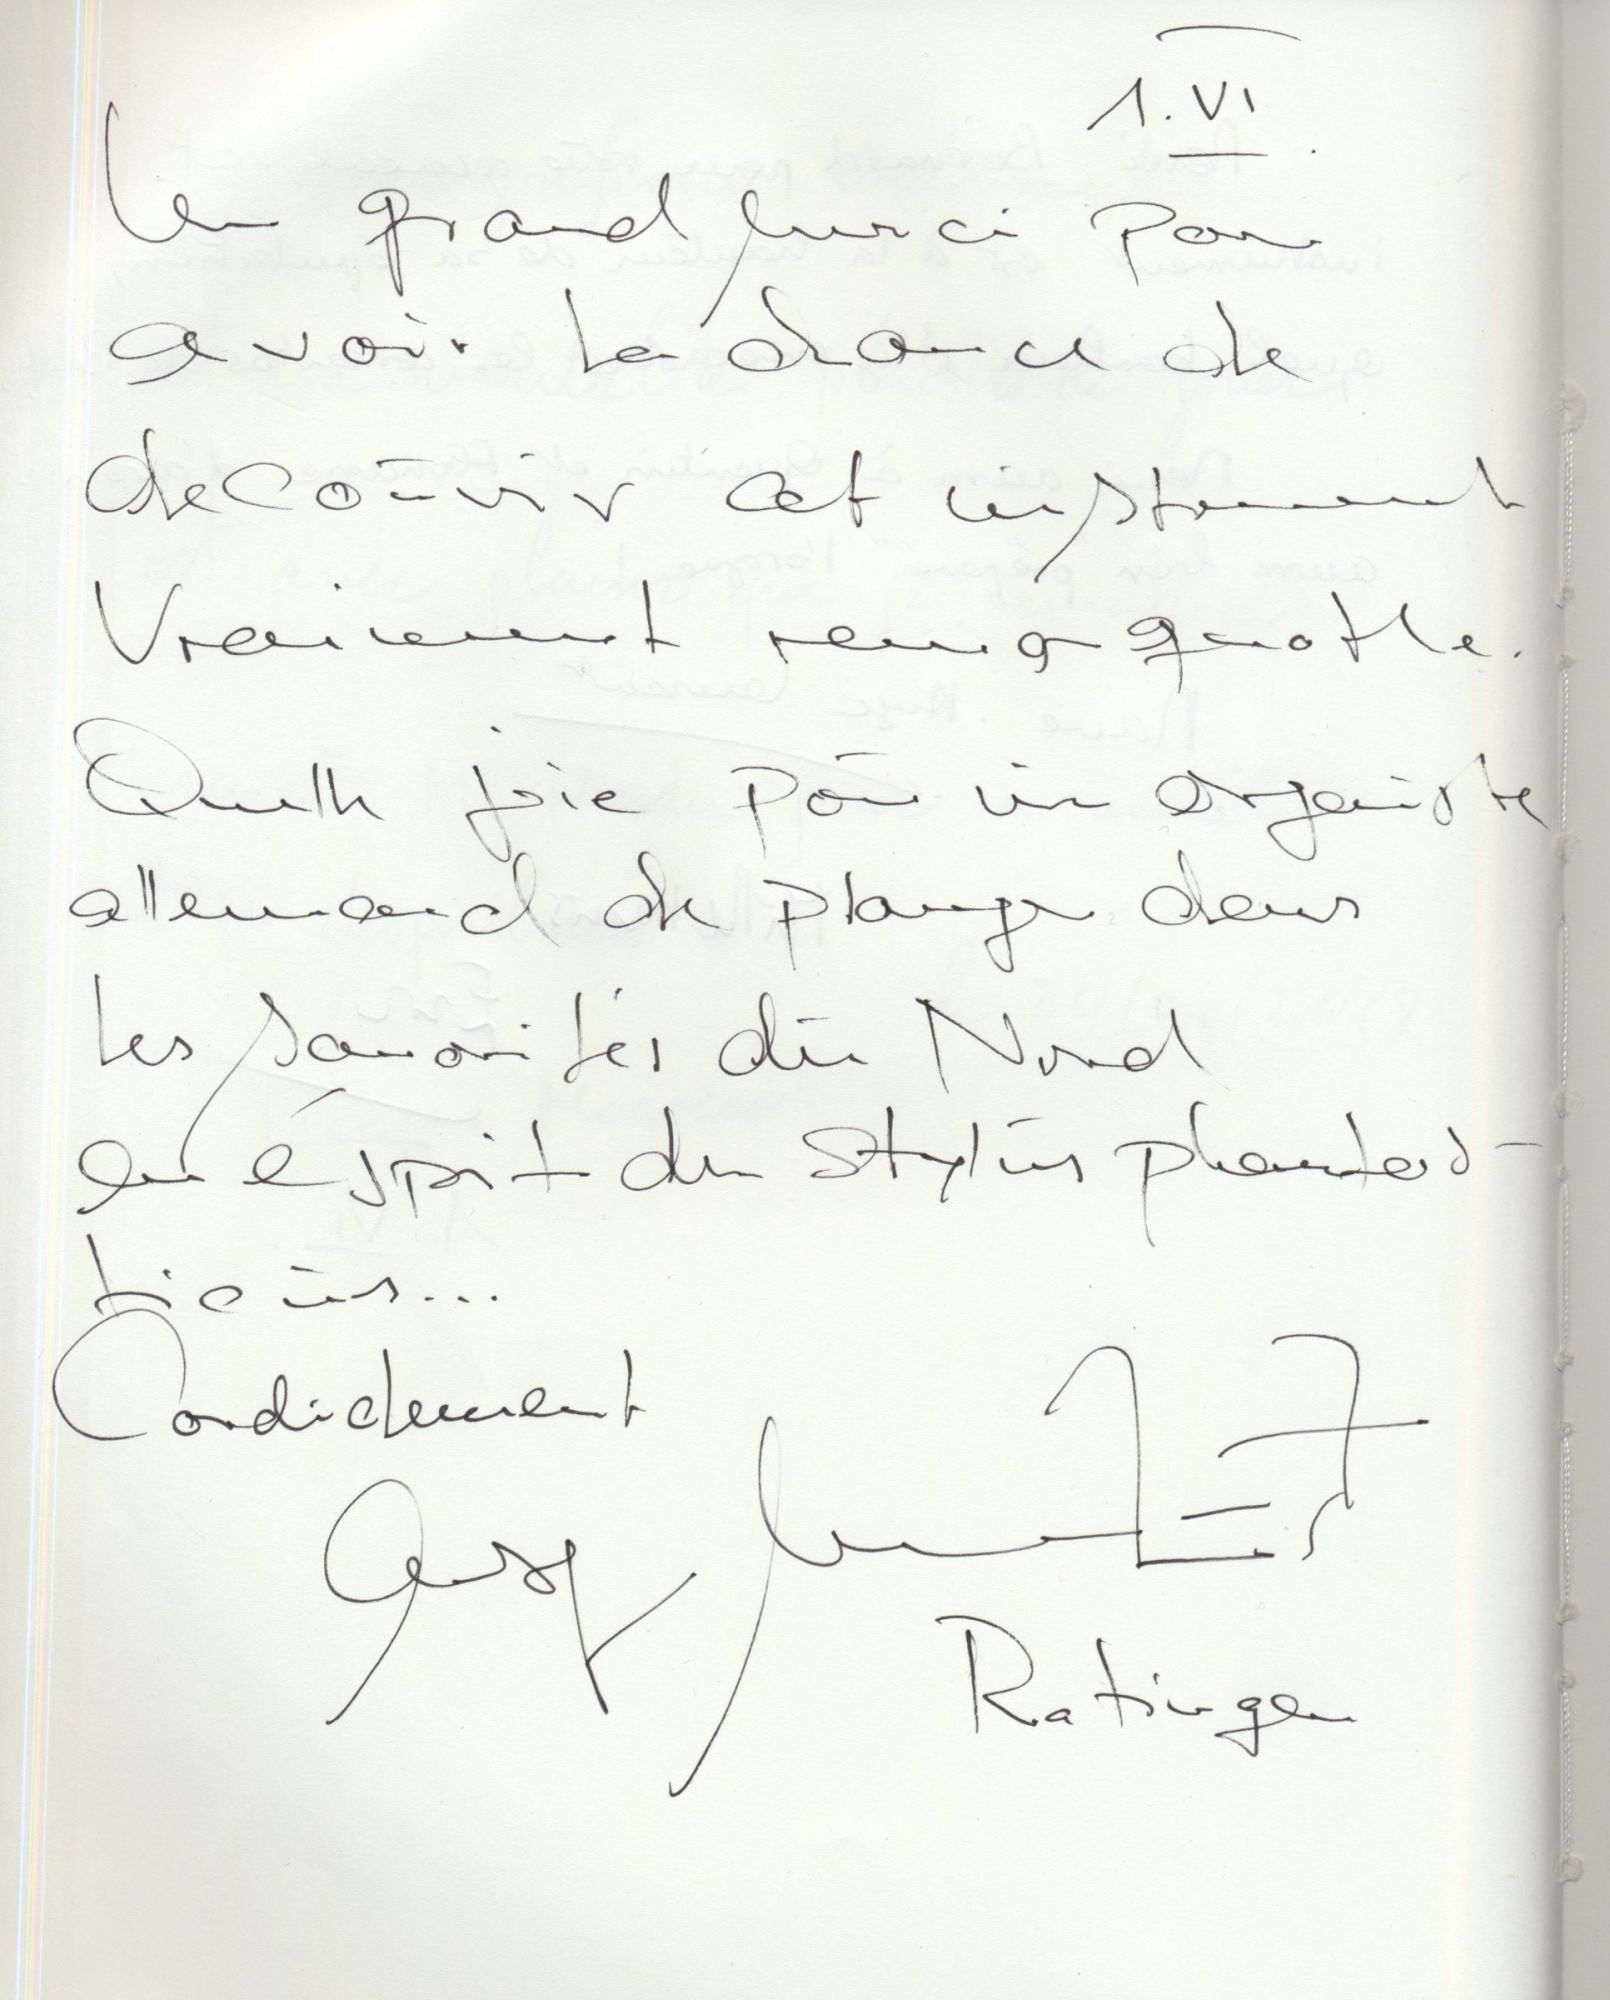 1.VI
Un grand merci pour
avoir la chance de
decoūvir cet instrument
vraiment remarquable.
Quelle joie poūr un organiste
allemand de plonger dans
les sonorités dū Nord
en ésprit du Stylūs phantas-
ticūs...
Cordialement
Ratingen